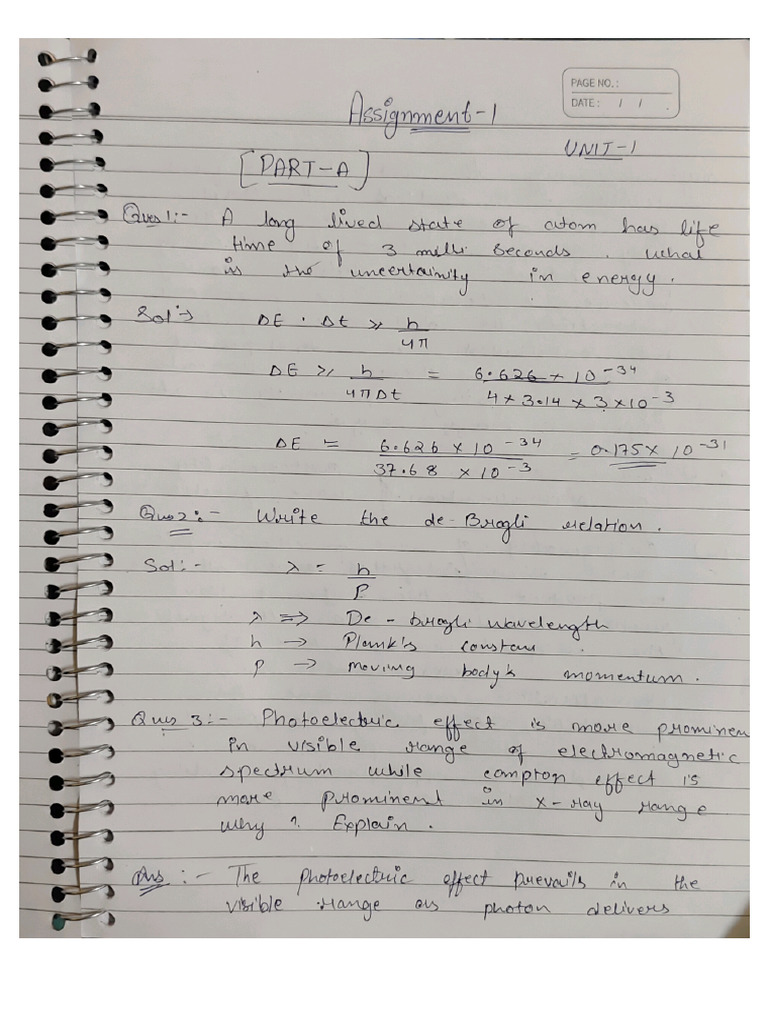 PAGE NO. :
DATE : / /
Assignment-1
UNIT-1
[PART-A]
Ques 1:- A long lived state of atom has life
time of 3 milli seconds. what
is the uncertainity in energy.
Sol:→ ΔE . Δt ≥ h/4π
ΔE ≥ h/4πΔt = 6.626 × 10^-34 / 4 × 3.14 × 3 × 10^-3
ΔE = 6.626 × 10^-34 / 37.68 × 10^-3 = 0.175 × 10^-31
Ques 2:- Write the de-Brogli relation.
Sol:- λ = h/P
λ ⇒ De-brogli wavelength
h → Plank's constan
p → moving body's momentum.
Ques 3:- Photoelectric effect is more prominen
in visible range of electromagnetic
spectrum while compton effect is
more prominent in x-ray range
why ? Explain.
Ans :- The photoelectric effect prevails in the
visible range as photon delivers